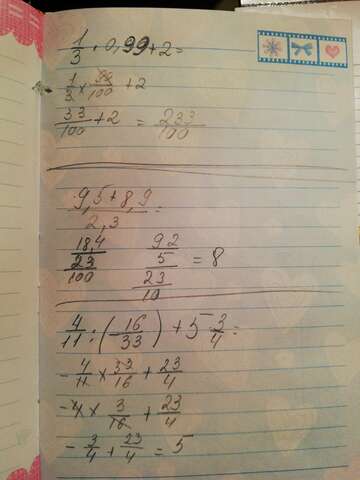 1/3 · 0,99 + 2 =
1/3 × 99/100 + 2
33/100 + 2 = 233/100
9,5 + 8,9 / 2,3 =
18,4 / 23/100   92/5 / 23/10 = 8
4/11 : (-16/33) + 5 3/4 =
- 4/11 × 33/16 + 23/4
-4 × 3/16 + 23/4
- 3/4 + 23/4 = 5